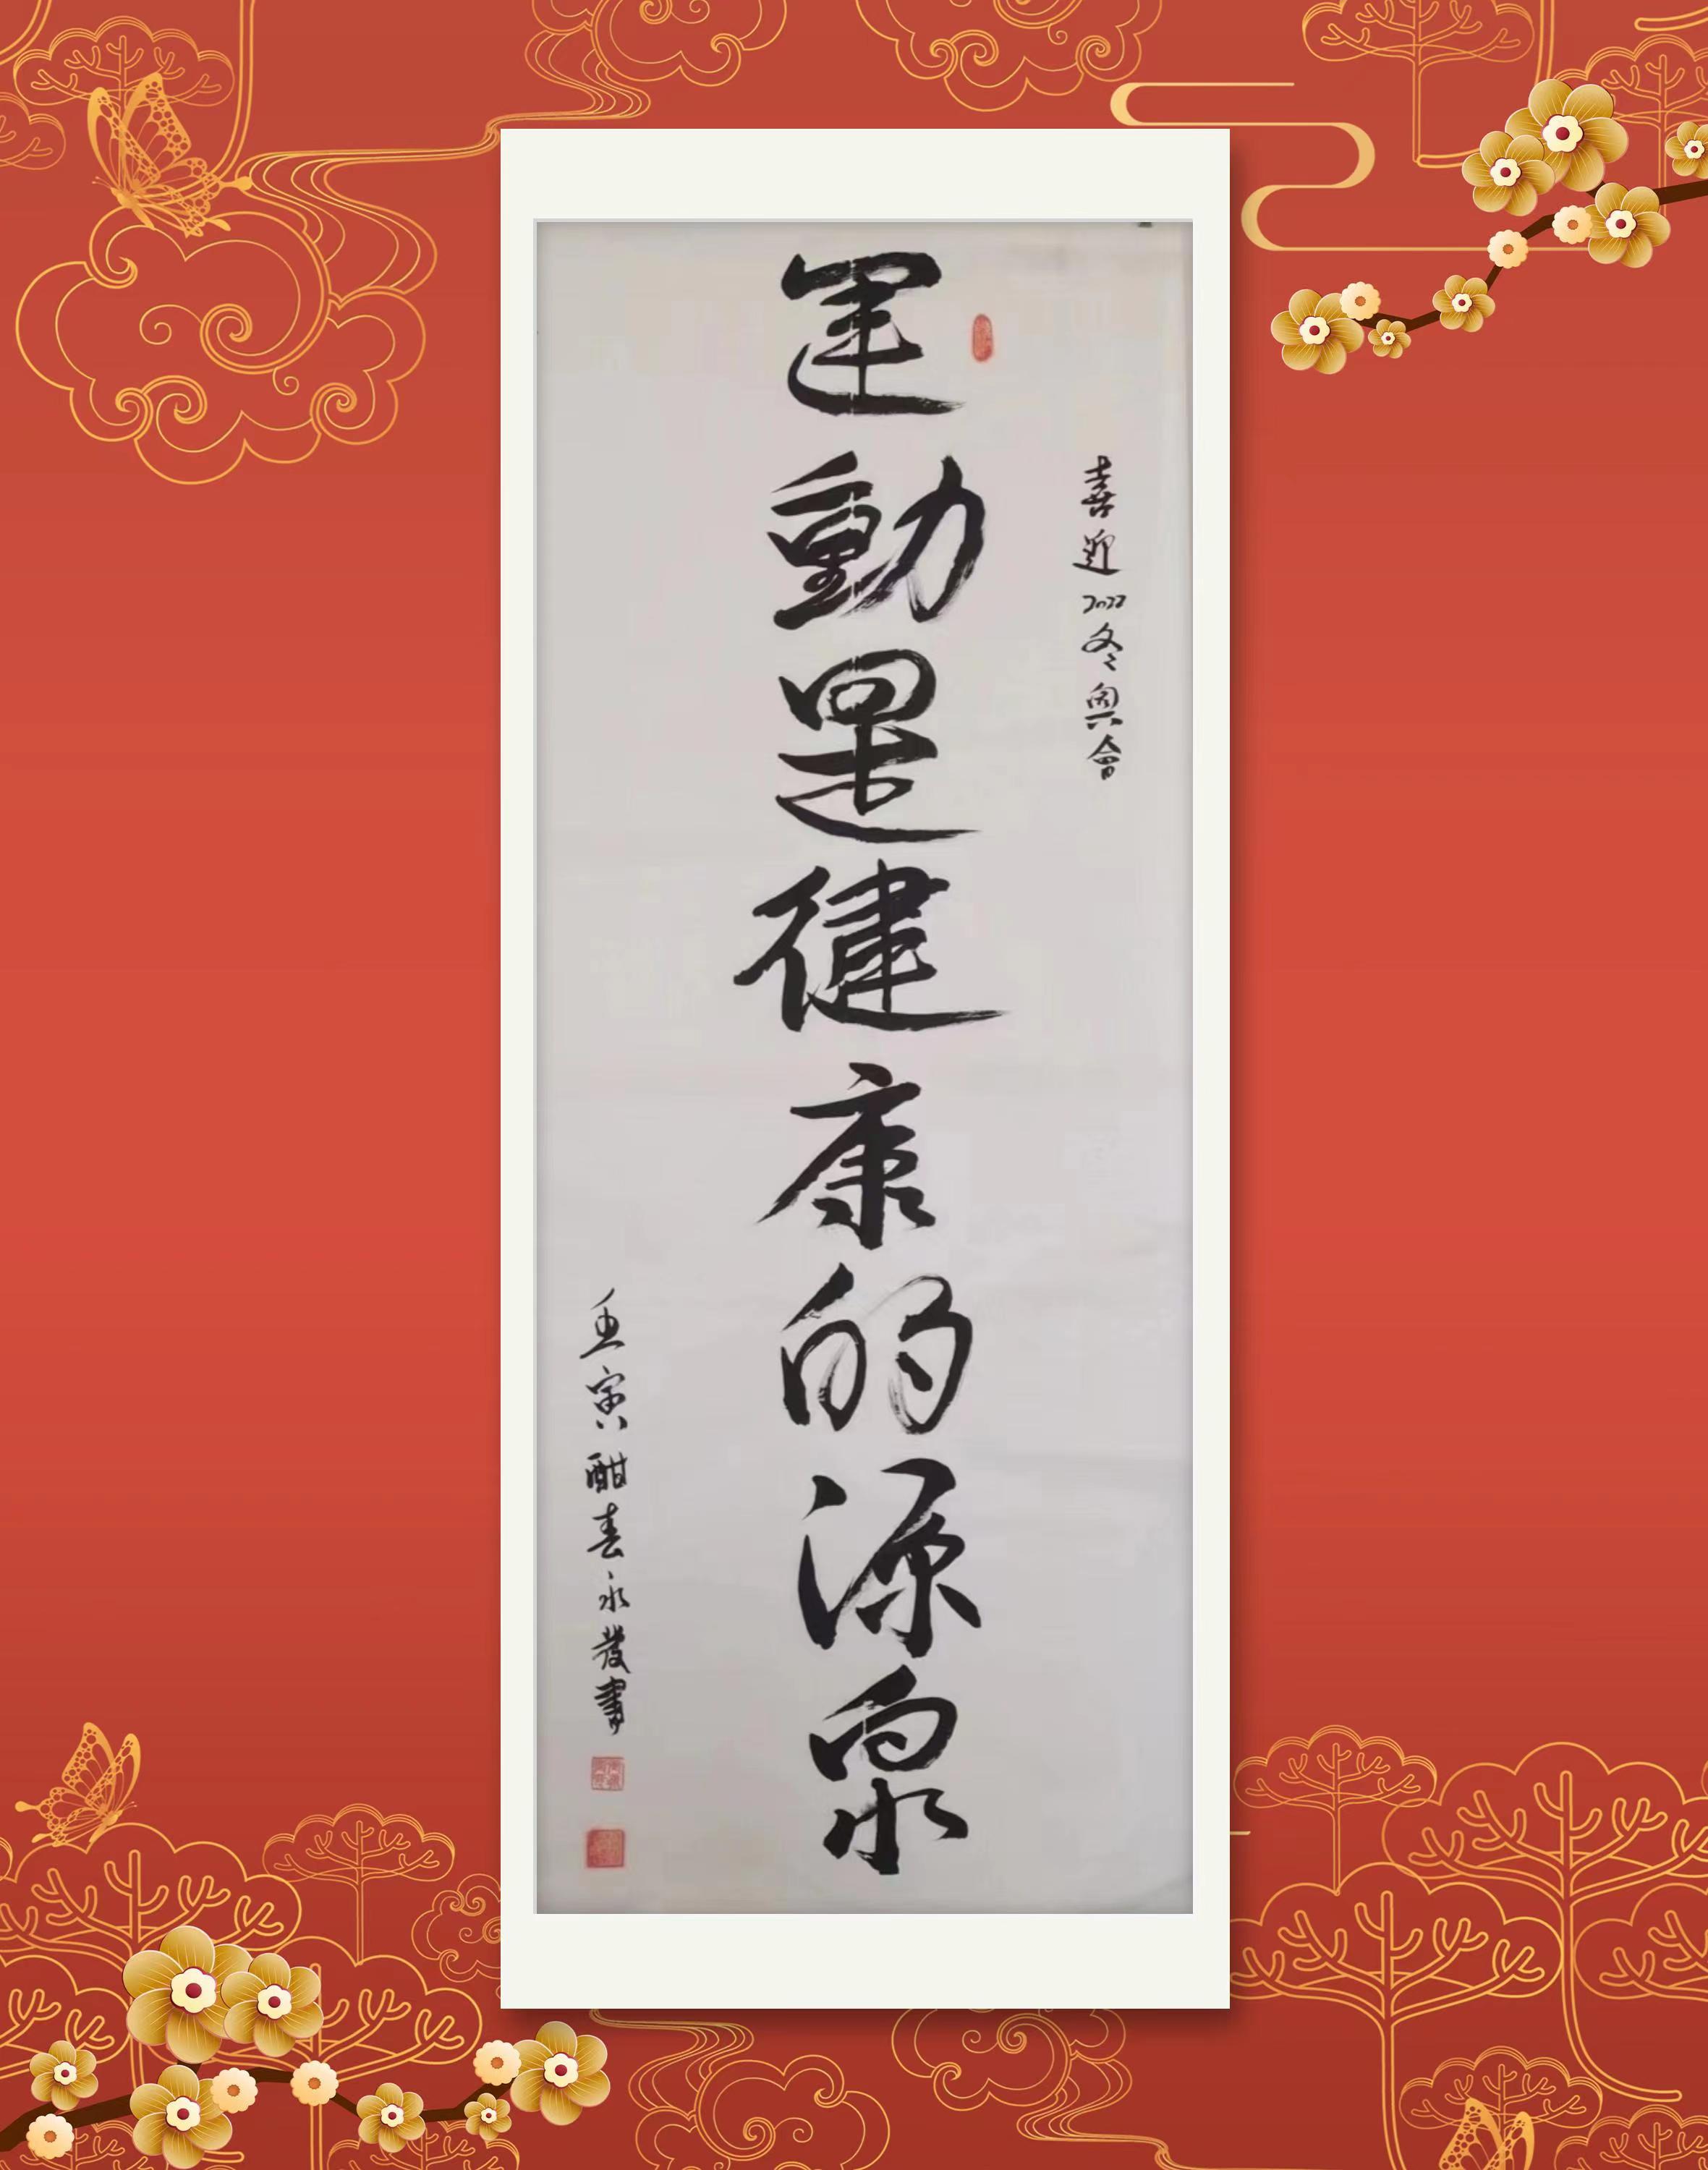 喜迎2022冬奥會
運動是健康的源泉
壬寅酣春永發書